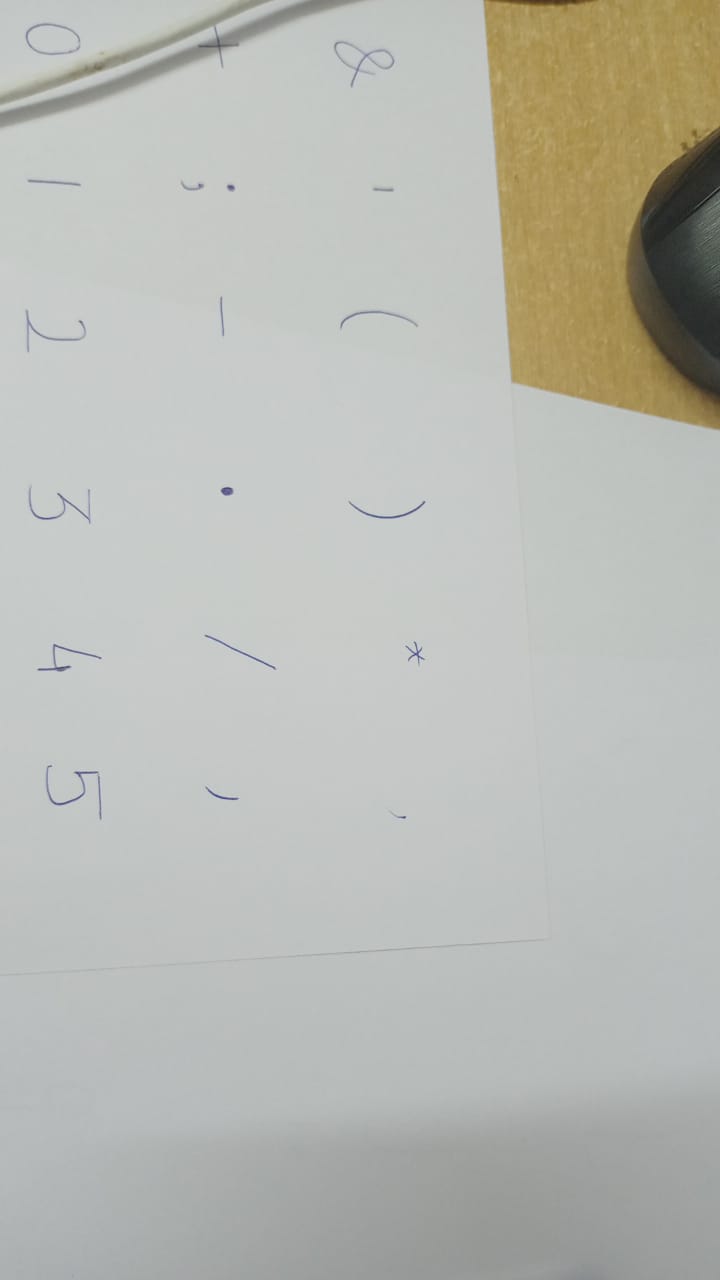 & ' ( ) * ,
+ ; - . / ,
0 1 2 3 4 5